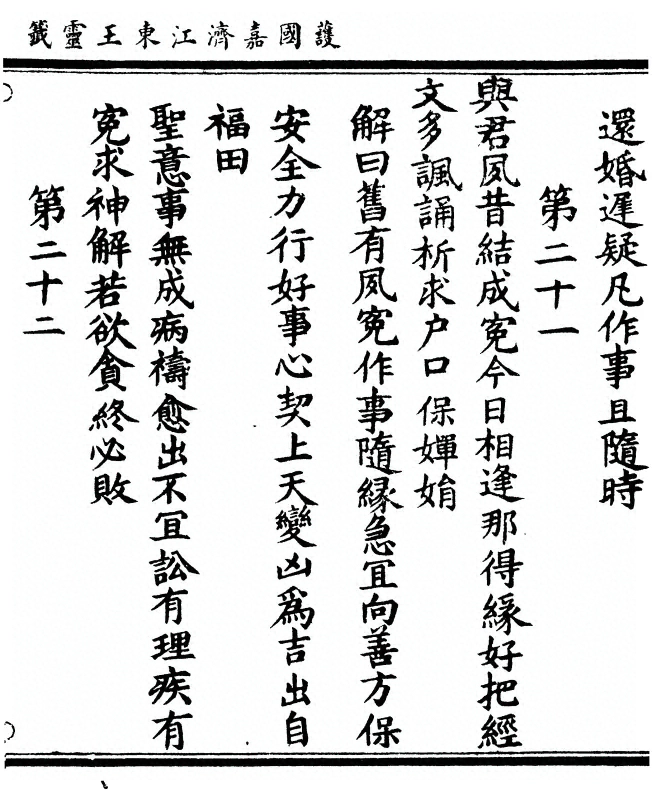 護國嘉濟江東王靈籤
還婚遲疑凡作事且隨時
第二十一
與君夙昔結成寃今日相逢那得緣好把經
文多諷誦析求户口保嬋娟
解曰舊有夙寃作事隨緣急冝向善方保
安全力行好事心契上天變凶為吉出自
福田
聖意事無成病禱愈出不冝訟有理疾有
寃求神解若欲貪終必敗
第二十二